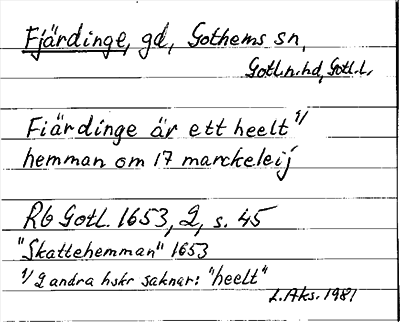 Fjärdinge, gd, Gothems sn,
Gotl.n.hd, Gotl.l.
Fiärdinge är ett heelt 1/
hemman om 17 marckeleij
Rb Gotl. 1653, 2, s. 45
"Skattehemman" 1653
1/ 2 andra hskr saknar: "heelt"
L.Aks. 1981